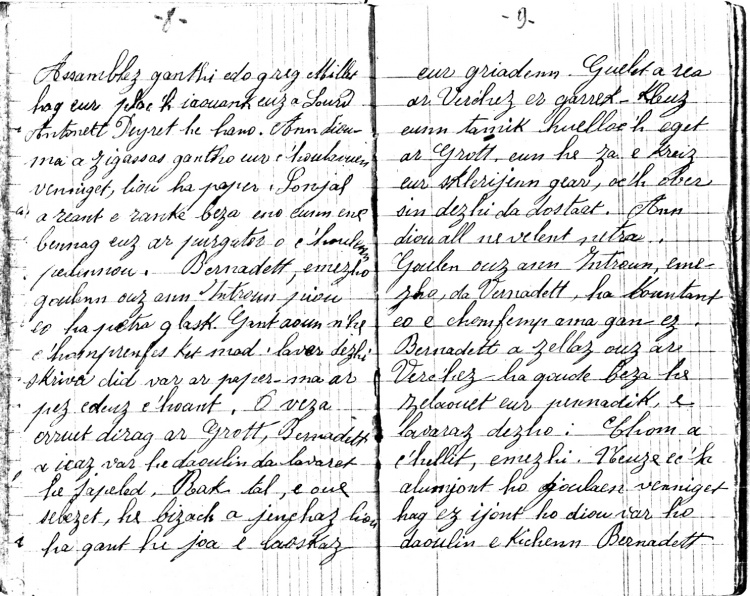 -8-
Assamblez ganthi edo greg Millet
hag eur plac'h iaouank euz a Lourd
Antonett Peyret he hano. Ann diou-
ma a zigassas gantho eur c'houlaouen
venniget, liou ha paper. Sonjal
a reant e ranke beza eno eunn ene
bennag euz ar purgator o c'houlenn
pedennou. Bernadett, emezho
goulenn ouz ann Introun piou
eo ha petra glask. Gant aoun n'he
c'homprenfes ket mad, lavar dezhi
skriva did var ar paper-ma ar
pez edeuz c'hoant. O veza
erruet dirag ar Grott, Bernadett
a ieaz var he daoulin da lavaret
he japeled. Rak tal, e oue
sebezet, he bizach a jenchaz liou
ha gant he joa e laoskaz
-9-
eur griadenn. Guelet a rea
ar Verc'hez er garrek-kleuz
eunn tamik huelloc'h eget
ar Grott, eun he za e kreiz
eur sklerijenn gear, oc'h ober
sin dezhi da dostaat. Ann
diou all ne velent netra.
Goulen ouz ann Introun, eme-
zho, da Vernadett, ha kountant
eo e chomfemp ama gan-ez.
Bernadett a zellaz ouz ar
Verc'hez ha goude beza he
zelaouet eur pennadik, e
lavaraz dezho: Chom a
c'hellit, emezhi. Neuze ec'h
alumjont ho goulaen venniget
hag ez ijont ho diou var ho
daoulin e kichenn Bernadett